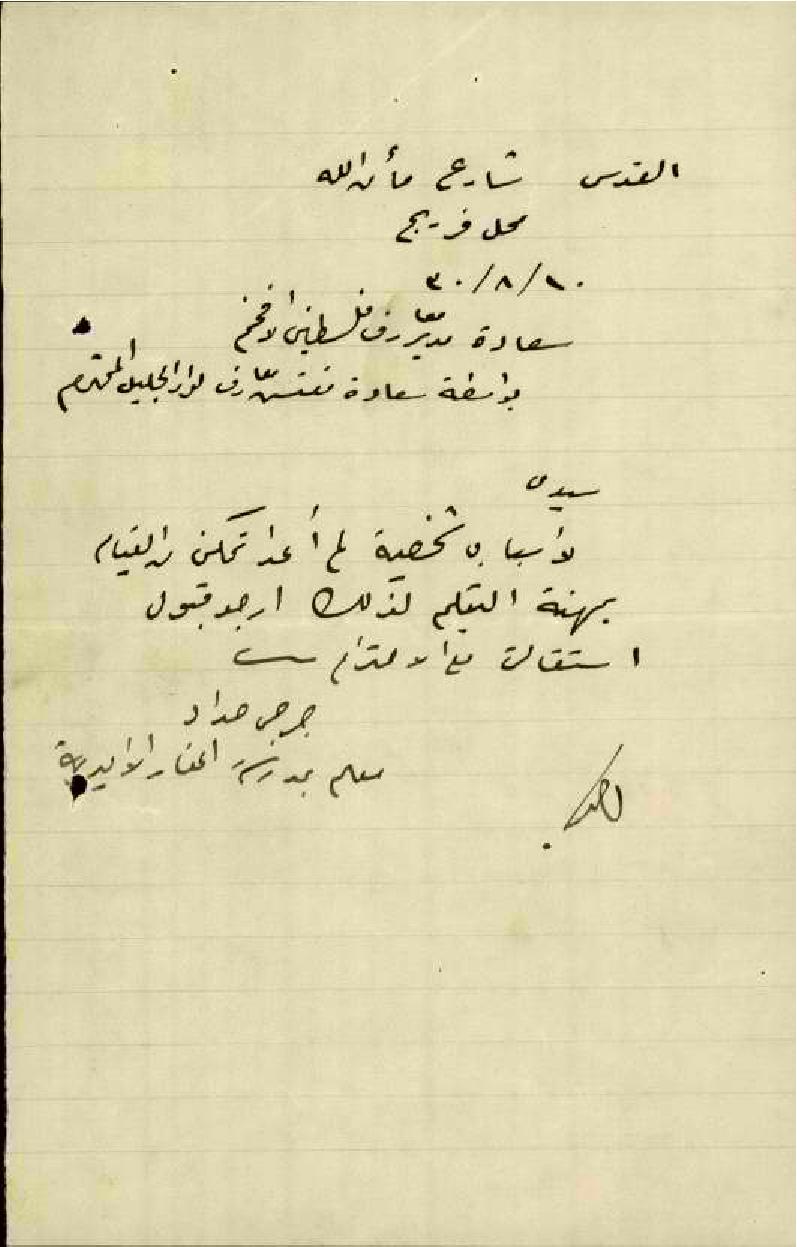 القدس شارع مأمن الله
محل فريج
٣٠/٨/١٠
سعادة مدير معارف فلسطين الافخم
بواسطة سعادة مفتش معارف لواء الجليل المحترم
سيدي
لأسباب شخصية لم أعد اتمكن من القيام
بمهنة التعليم لذلك ارجو قبول
استقالتي مع الاحترام
جرجي حداد
معلم بمدرسة المغار الاميرية